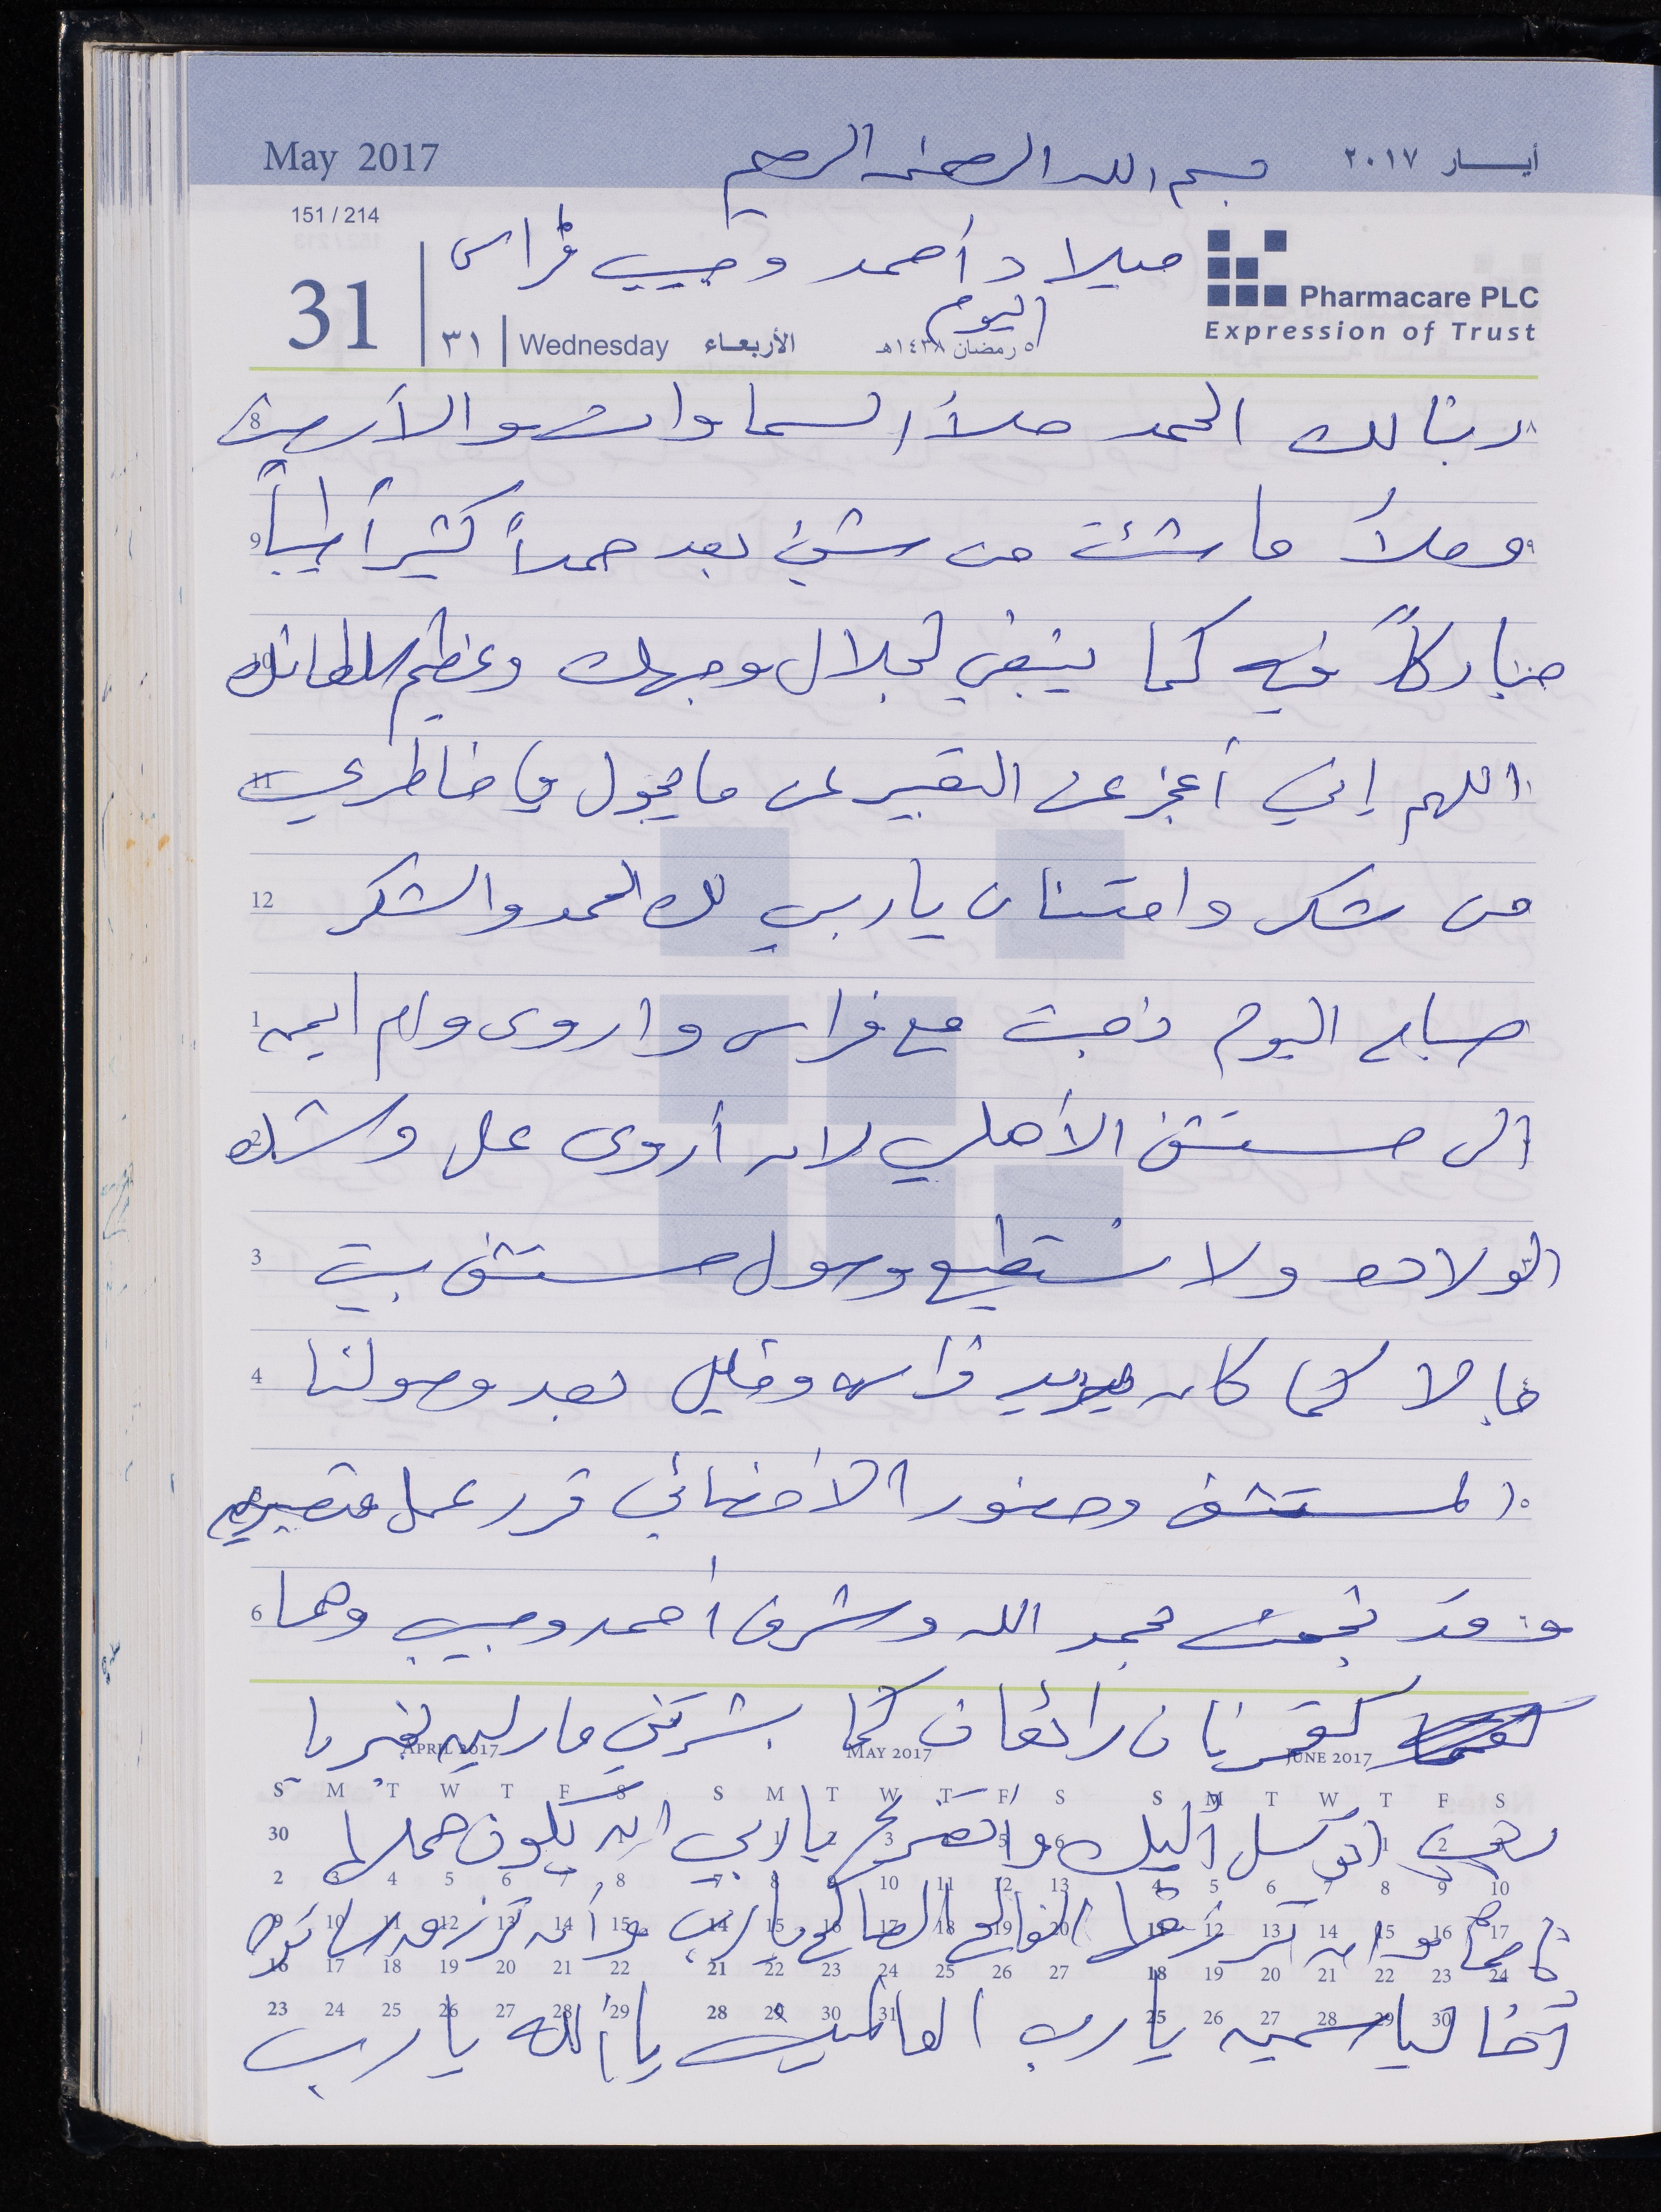 May 2017
بسم الله الرحمن الرحيم
أيـــار ٢٠١٧
151 / 214
ميلاد أحمد وحبيب فراس
31 | ٣١ | Wednesday الأربعـاء
اليوم
٥ رمضان ١٤٣٨هـ
Pharmacare PLC
Expression of Trust
ربنا لك الحمد ملأ السماوات والأرض
وملأ ما شئت من شيئ بعد حمداً كثيراً طيباً
مباركاً فيه كما ينبغي لجلال وجهك وعظيم سلطانك
اللهم إني أعجز عن التعبير عن ما يجول في خاطري
من شكر وامتنان ياربي لك الحمد والشكر
صباح اليوم ذهبت مع فراس واروى وام ايمن
الى مستشفى الأهلي لان أروى على وشك
الولاده ولا نستطيع وصول مستشفى بيت
جالا كما كان يريد فراس وقليل بعد وصولنا
المستشفى وحضور الأخصائي قرر عمل قصيريه
وقد نجحت بحمد الله وشرف أحمد وحبيب وهما
كقمريان رائعان كما بشرتني مارليه بخير يا
ربي اتوسل أليك واتضرع ياربي ان يكون حملها
تاما وان ترزقها الصالح يارب وأن ترزق ساره
أخا لياسمين يارب العالمين يا ألله يارب
APRIL 2017
S M T W T F S
30 1
2 3 4 5 6 7 8
9 10 11 12 13 14 15
16 17 18 19 20 21 22
23 24 25 26 27 28 29
MAY 2017
S M T W T F S
1 2 3 4 5 6
7 8 9 10 11 12 13
14 15 16 17 18 19 20
21 22 23 24 25 26 27
28 29 30 31
JUNE 2017
S M T W T F S
1 2 3
4 5 6 7 8 9 10
11 12 13 14 15 16 17
18 19 20 21 22 23 24
25 26 27 28 29 30